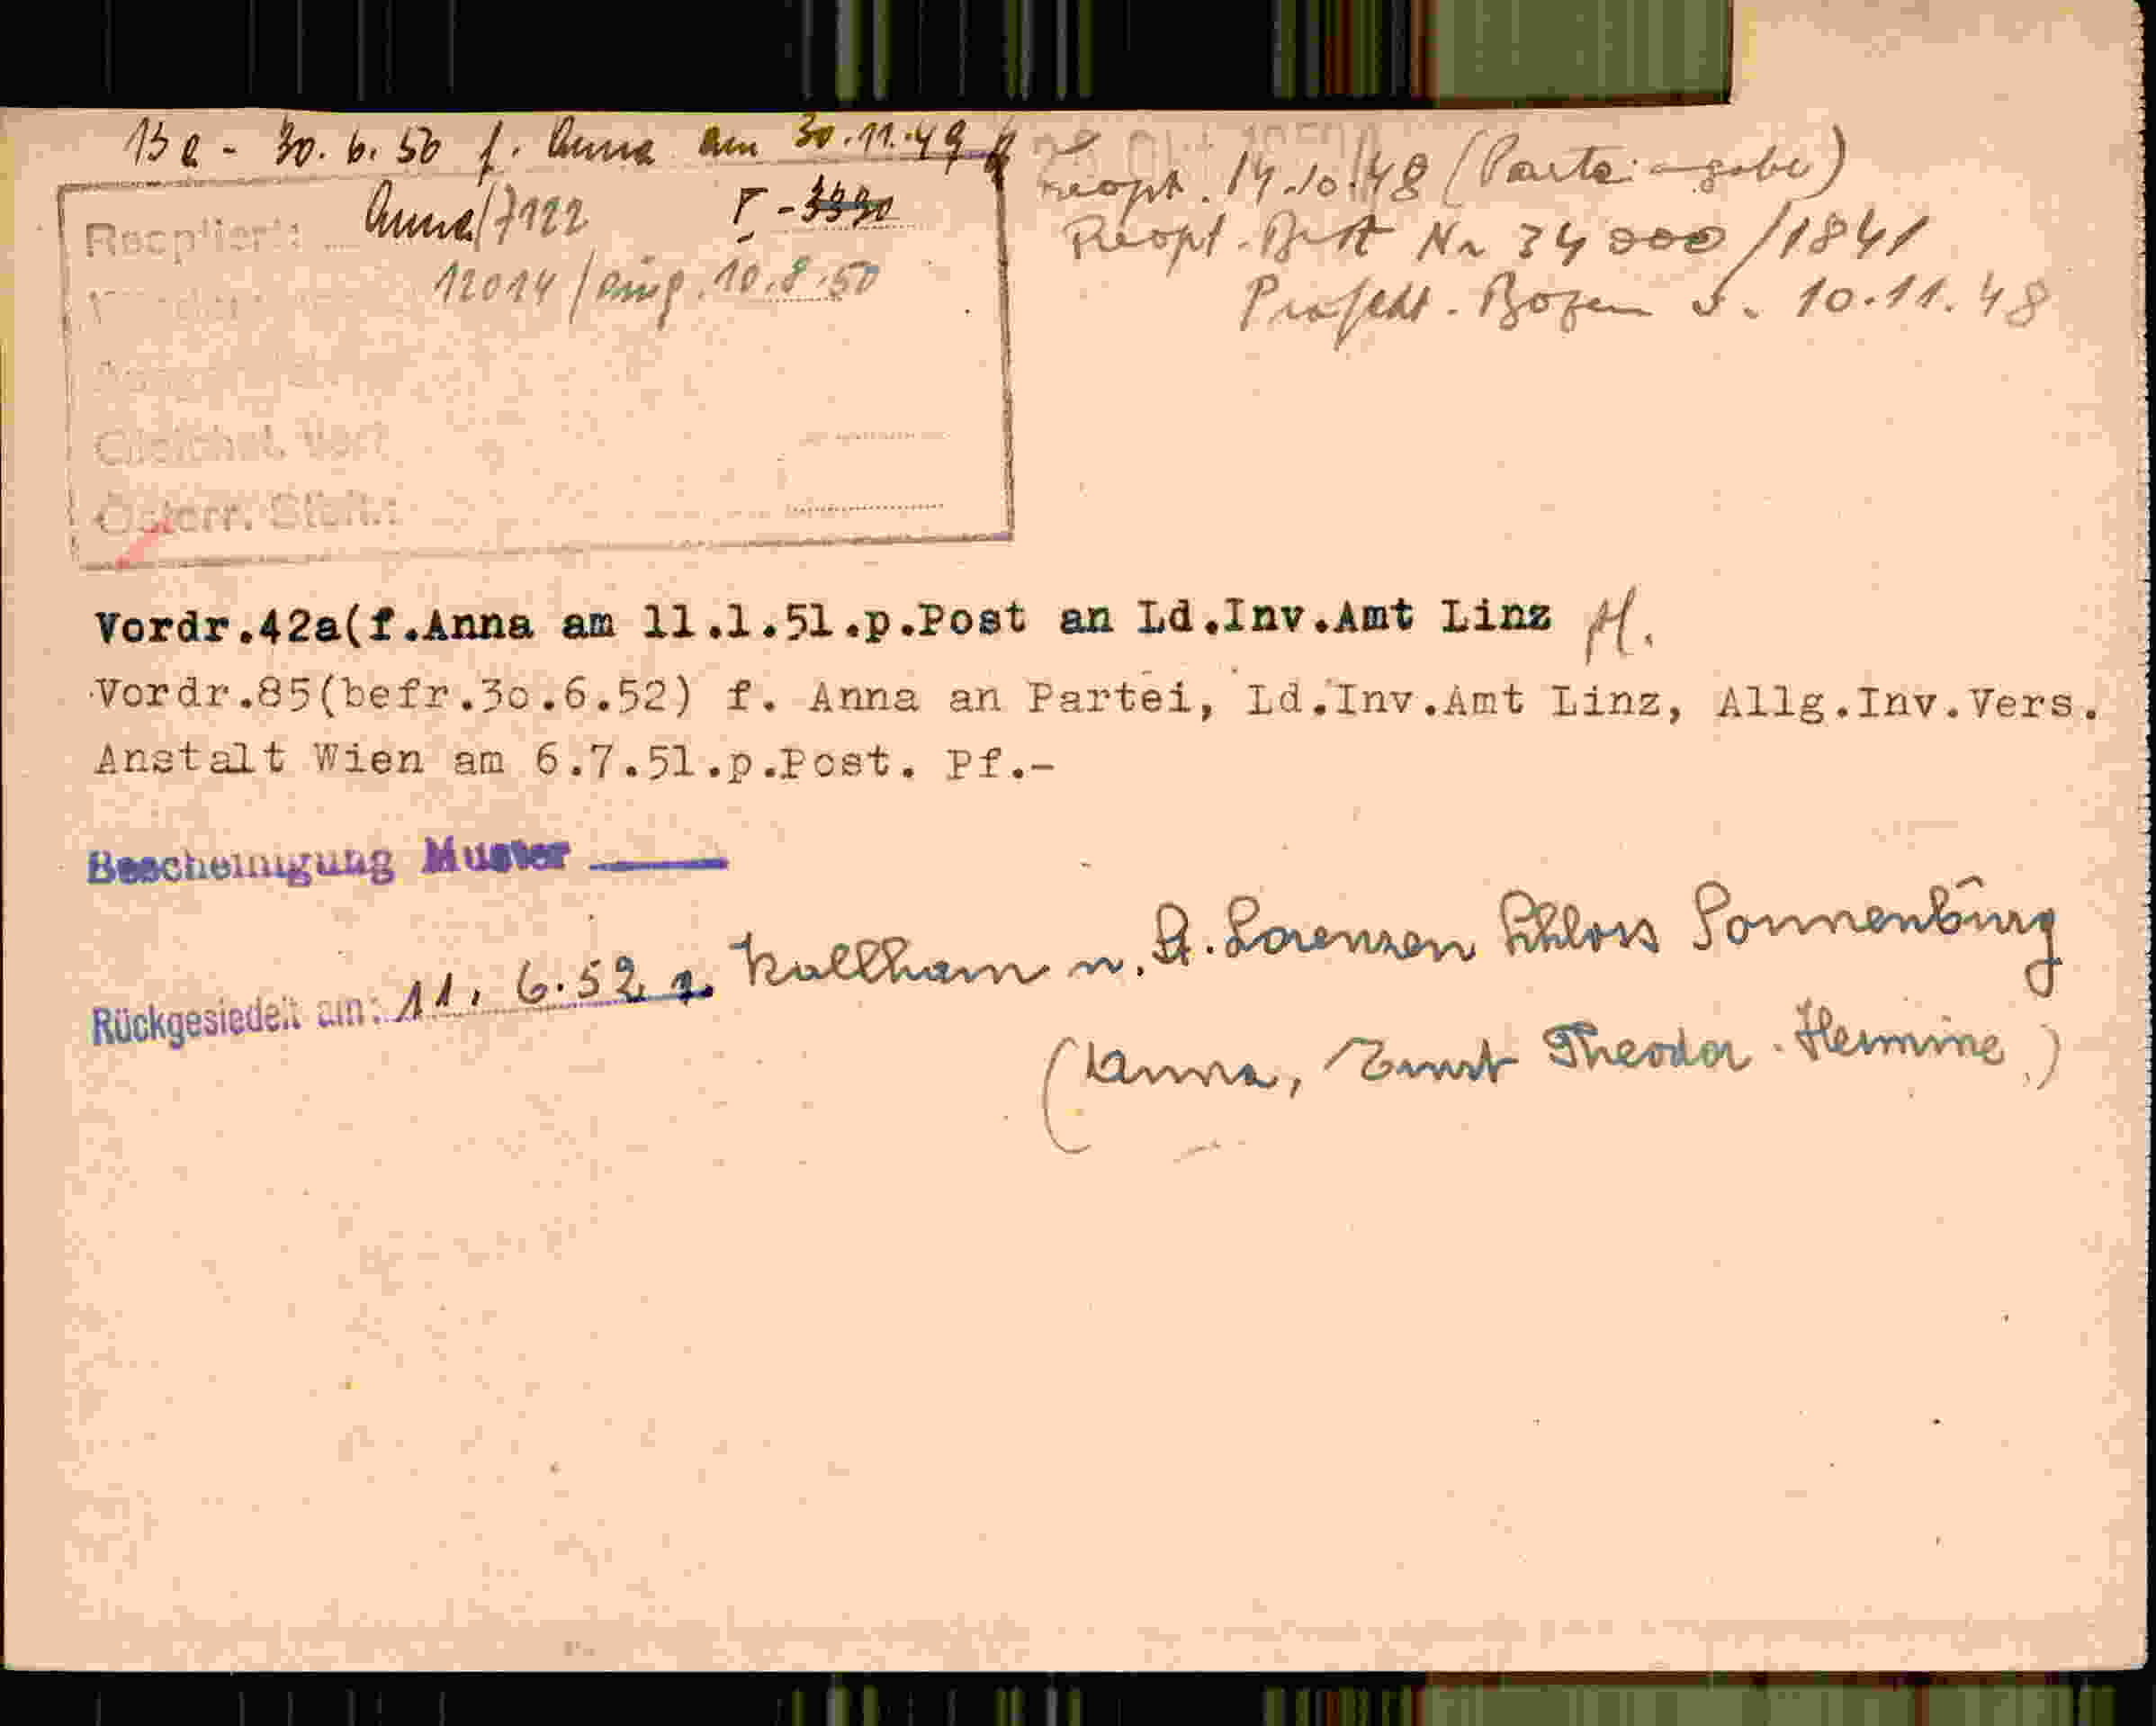 13a - 30.6.50 f. Anna am 30.11.49
reopt. 14.10.48 (Parteiangabe)
Reoptiert: Anna/7122 I - 3390
Reopt. Besst Nr 34000/1841
12014/eing. 10.8.50
Präfekt. Bozen v. 10.11.48
Gleichst. Verf.
Österr. Stbft.:
Vordr.42a(f.Anna am 11.1.51.p.Post an Ld.Inv.Amt Linz H.
Vordr.85(befr.30.6.52) f. Anna an Partei, Ld.Inv.Amt Linz, Allg.Inv.Vers.
Anstalt Wien am 6.7.51.p.Post. Pf.-
Bescheinigung Muster
Rückgesiedelt am: 11. 6.52 v. Kallham n. St. Lorenzen Schloss Sonnenburg
(Anna, Ernst Theodor. Hermine)